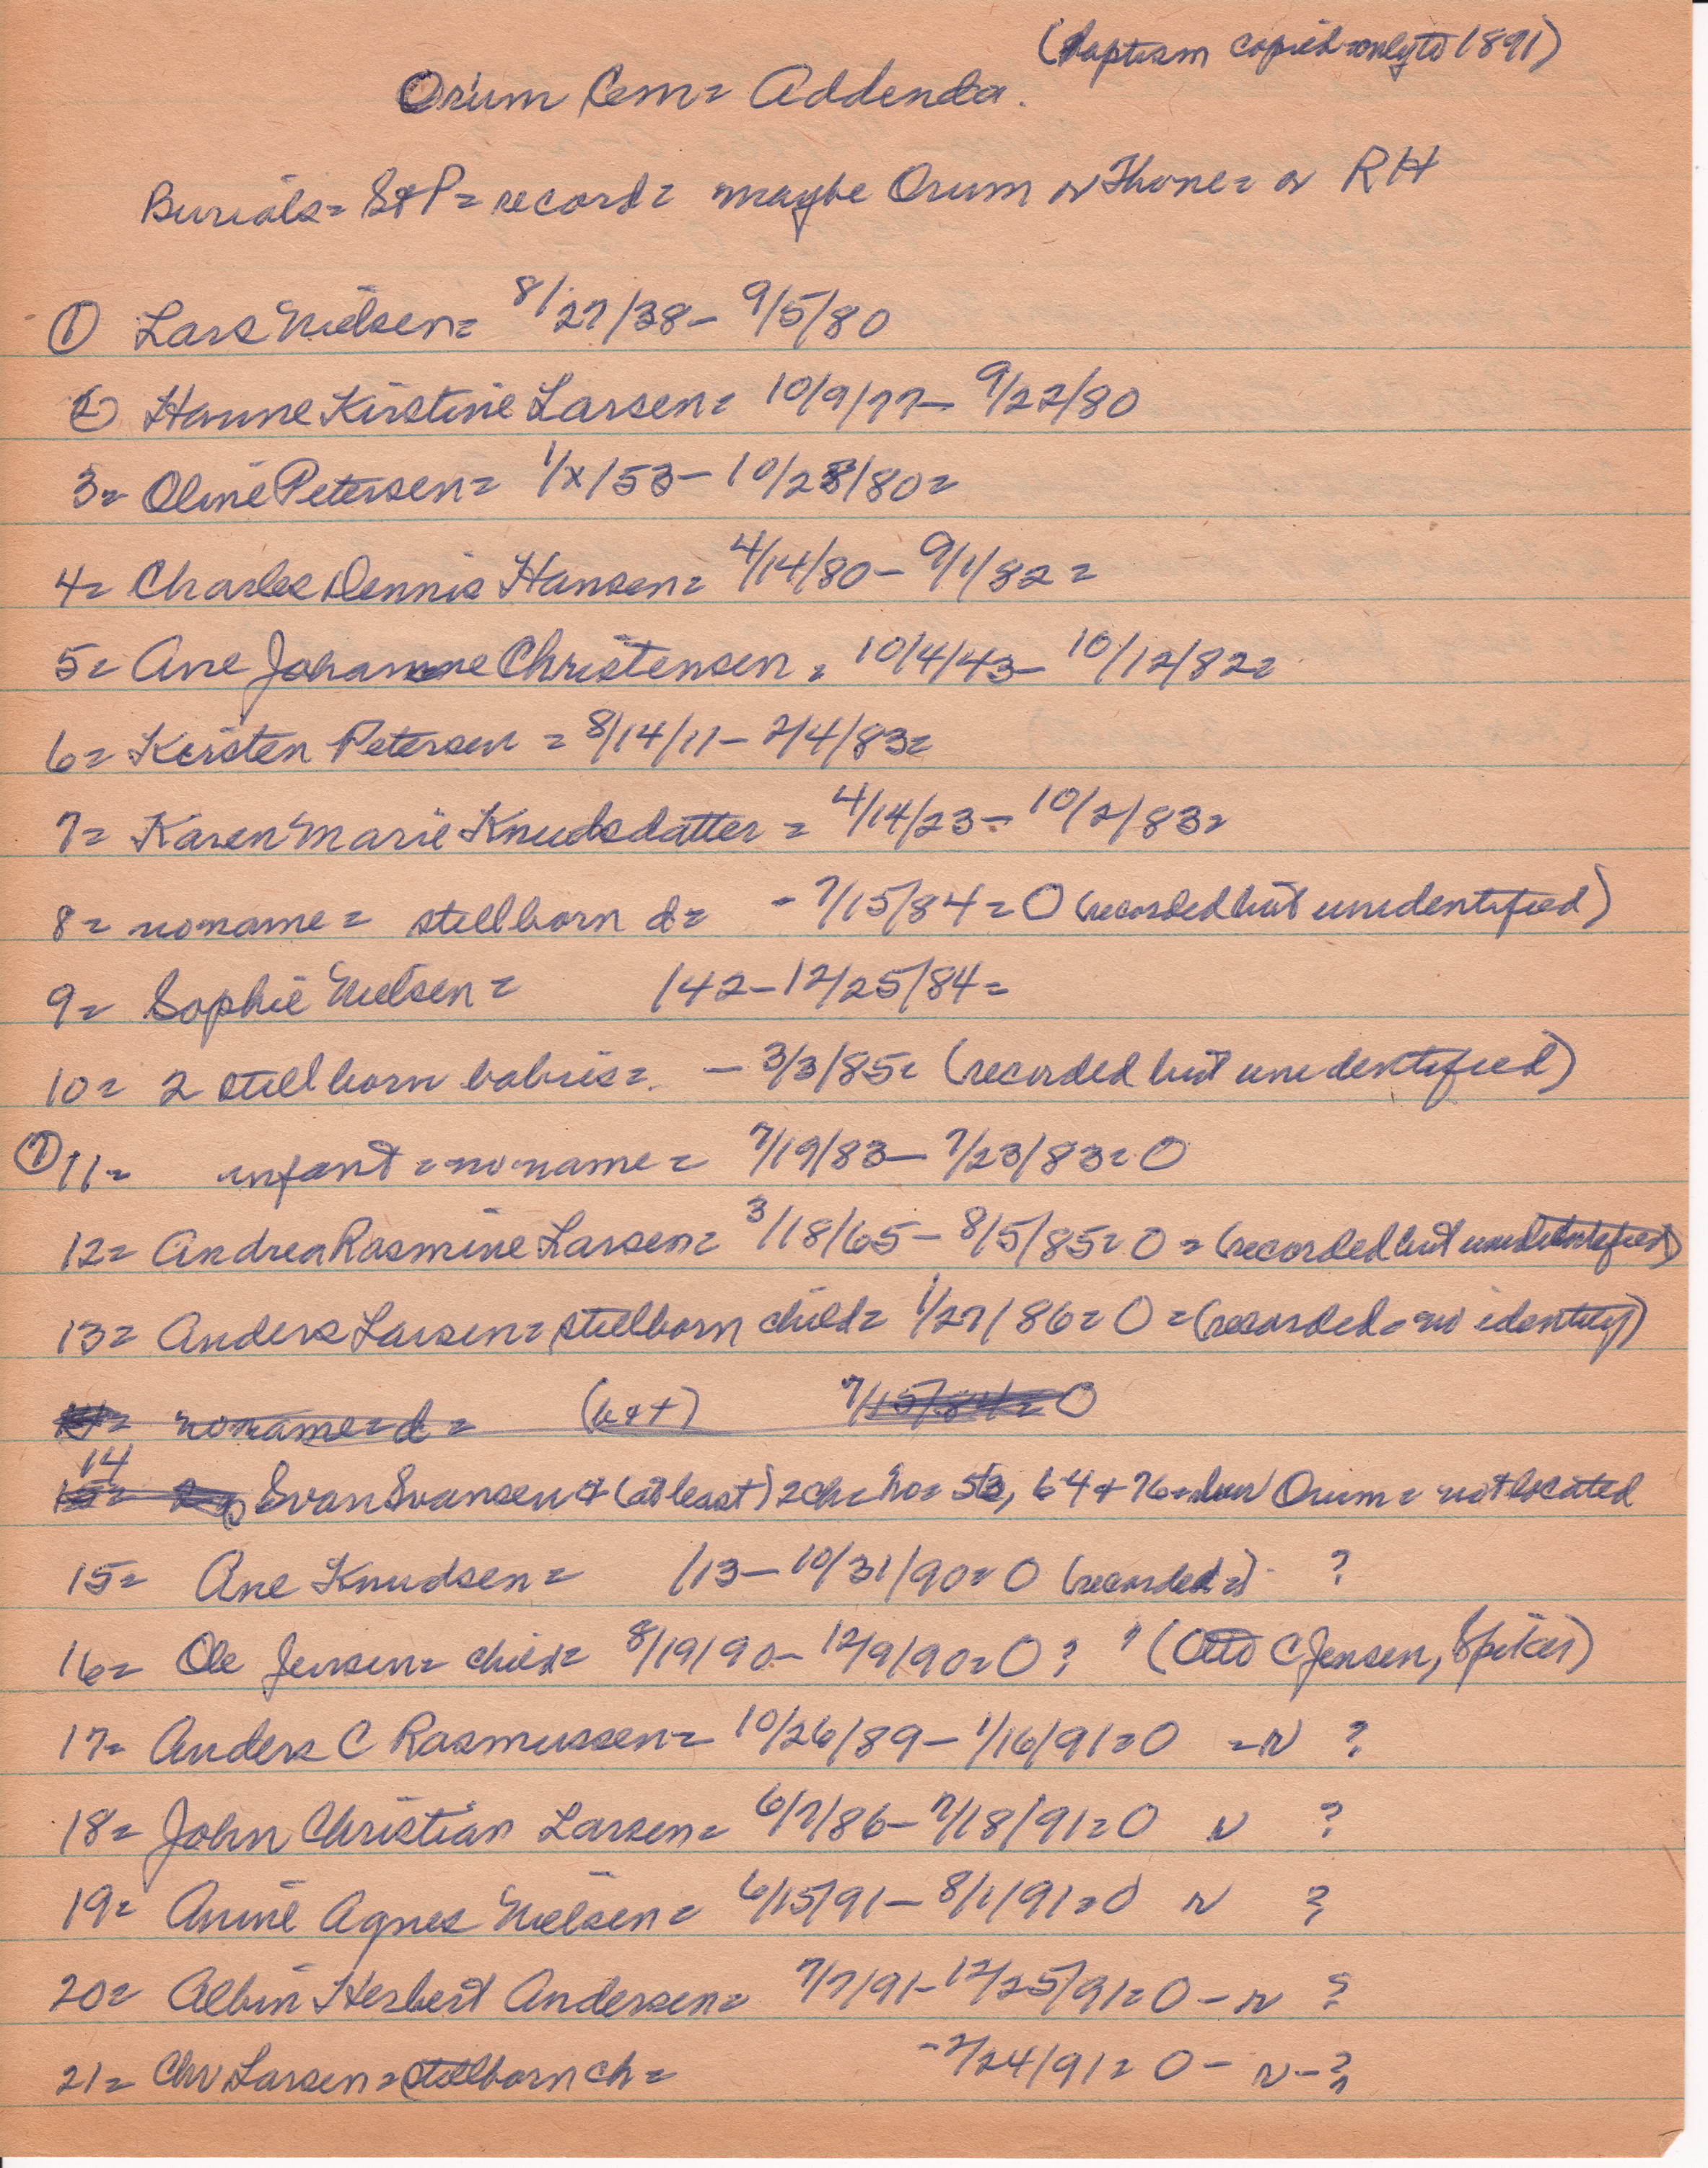 (Baptism copied=only to 1891)
Orum Cem= Addenda.
Burials= St P= record= maybe Orum or Thone= or RH
① Lars Nielsen= 8/27/38- 9/5/80
② Hanne Kirstine Larsen= 10/9/77- 9/22/80
3= Oline Petersen= 1/x/53- 10/28/80=
4= Charles Dennis Hansen= 4/14/80- 9/1/82=
5= Ane Johanne Christensen= 10/4/43- 10/12/82=
6= Kirsten Petersen = 8/14/11- 2/4/83=
7= Karen Marie Knudsdatter = 4/14/23- 10/2/83=
8= noname= stillborn d= - 7/15/84=0 (recorded but unidentified)
9= Sophie Nielsen= /42-12/25/84=
10= 2 stillborn babies= - 3/3/85= (recorded but unidentified)
⑦ 11= infant=noname= 7/19/83- 7/23/83=0
12= Andrea Rasmine Larsen= 3/18/65- 8/5/85=0 = (recorded but unidentified)
13= Anders Larsen= stillborn child= 1/27/86=0=(recorded=no identity)
14= noname=d= (b++) 7/15/84=0
14
15= Svan Svansen + (at least) 2ch= 53, 64+76= Orum= not located
15= Ane Knudsen= /13- 10/31/90=0 (recorded=) ?
16= Ole Jensen= child= 8/19/90- 12/9/90=0? ? (Otto C Jensen, Spiker)
17= Anders C Rasmussen= 10/26/89- 1/16/91=0 =r ?
18= John Christian Larsen= 6/7/86- 7/18/91=0 r ?
19= Anine Agnes Nielsen= 6/15/91- 8/1/91=0 r ?
20= Albin Herbert Andersen= 7/7/91- 12/25/91=0 - r ?
21= Chr Larsen=stillborn ch= -2/24/91=0 - r -?